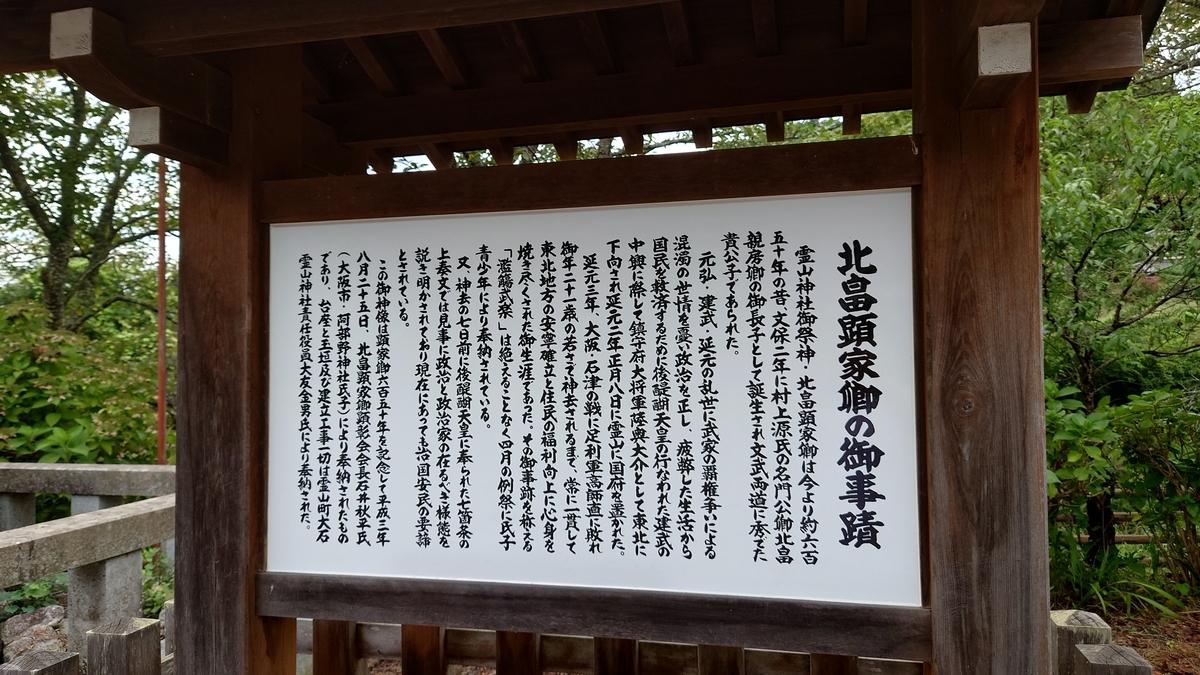 北畠顕家卿の御事蹟
霊山神社御祭神・北畠顕家卿は今より約六百
五十年の昔、文保二年に村上源氏の名門公卿北畠
親房卿の御長子として誕生され文武両道に秀でた
貴公子であられた。
元弘、建武、延元の乱世に武家の覇権争いによる
混濁の世情を憂い政治を正し、疲弊した生活から
国民を救済するために後醍醐天皇の行なわれた建武の
中興に際して鎮守府大将軍陸奥大介として東北に
下向され延元二年正月八日に霊山に国府を置かれた。
延元三年、大阪・石津の戦に足利軍高師直に敗れ
御年二十一歳の若さで神去されるまで、常に一貫して
東北地方の安寧確立と住民の福利向上に心身を
焼き尽くされた御生涯であった、その御事跡を称える
「濫觴武楽」は絶えることなく四月の例祭に氏子
青少年により奉納されている。
又、神去の七日前に後醍醐天皇に奉られた七箇条の
上奏文では見事に政治と政治家の在るべき様態を
説き明かされており現在にあっても治国安民の要諦
とされている。
この御神像は顕家卿六百五十年を記念して平成三年
八月二十五日、北畠顕家卿顕彰会会長石井秋平氏
(大阪市・阿部野神社氏子)により奉納されたもの
であり、台座と玉垣及び建立工事一切は霊山町大石
霊山神社責任役員大友金男氏により奉納された。